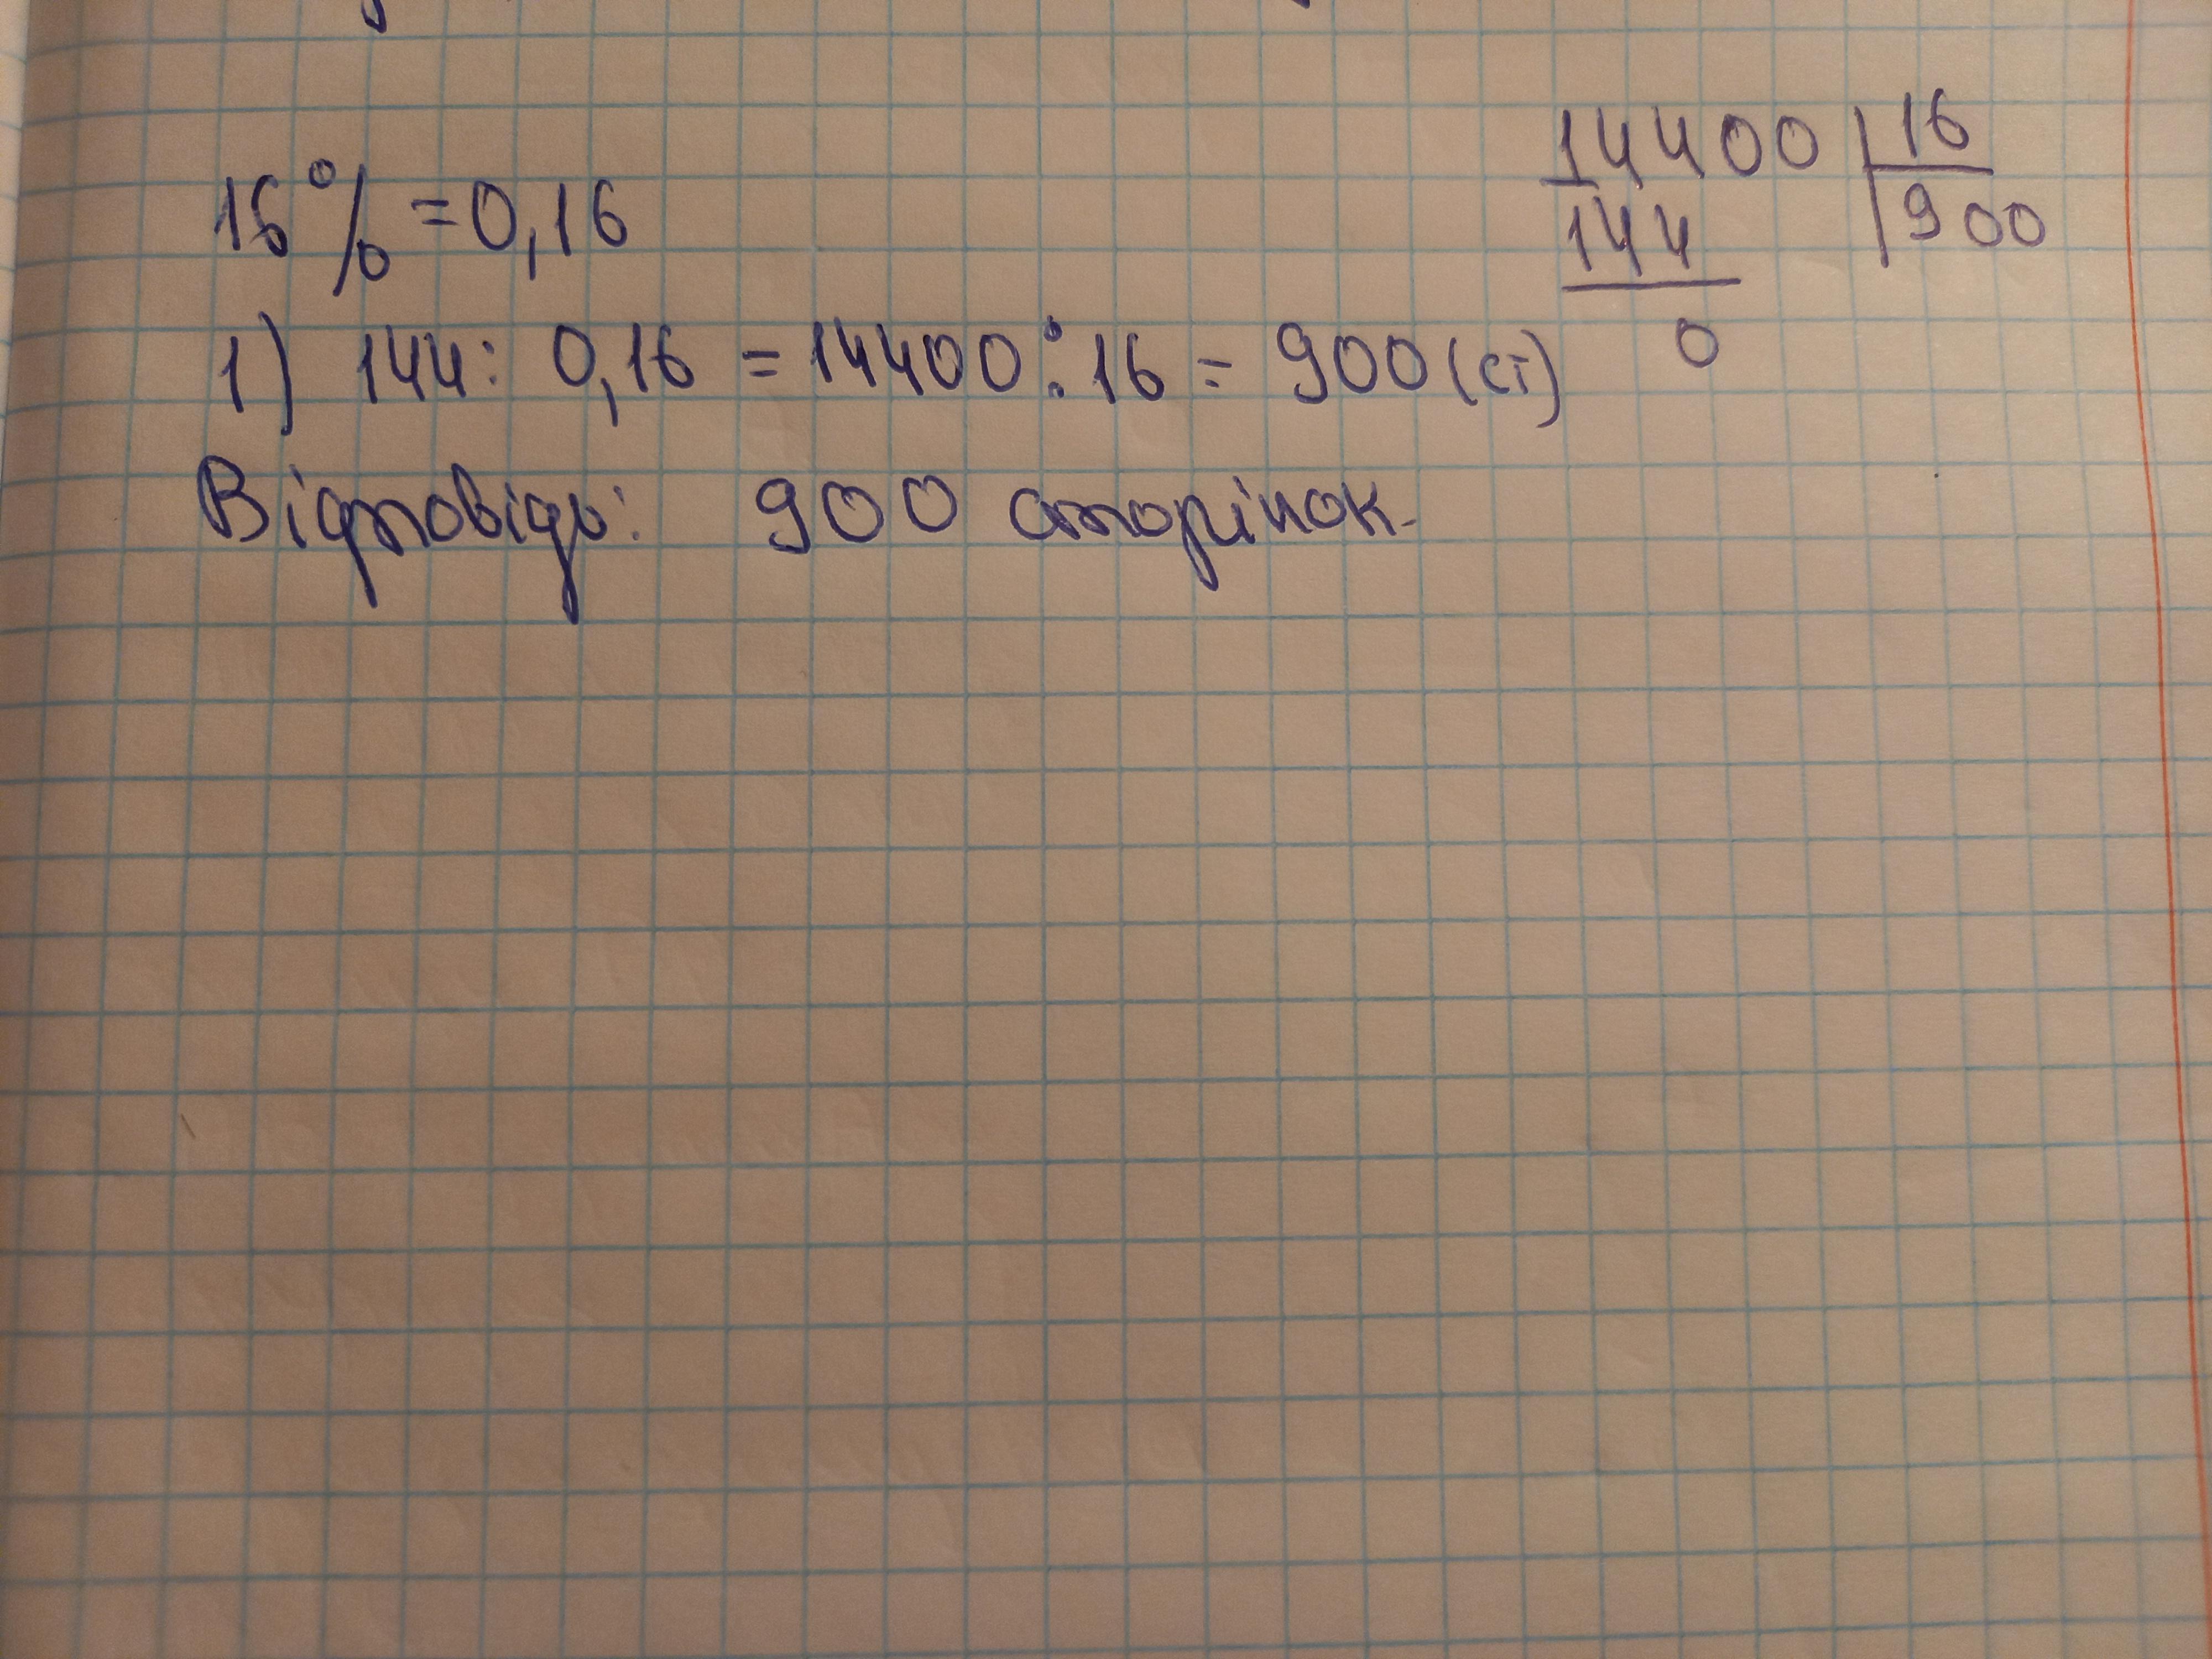 16% = 0,16
14400 | 16
144 | 900
0
1) 144 : 0,16 = 14400 : 16 = 900 (ст)
Відповідь: 900 сторінок.